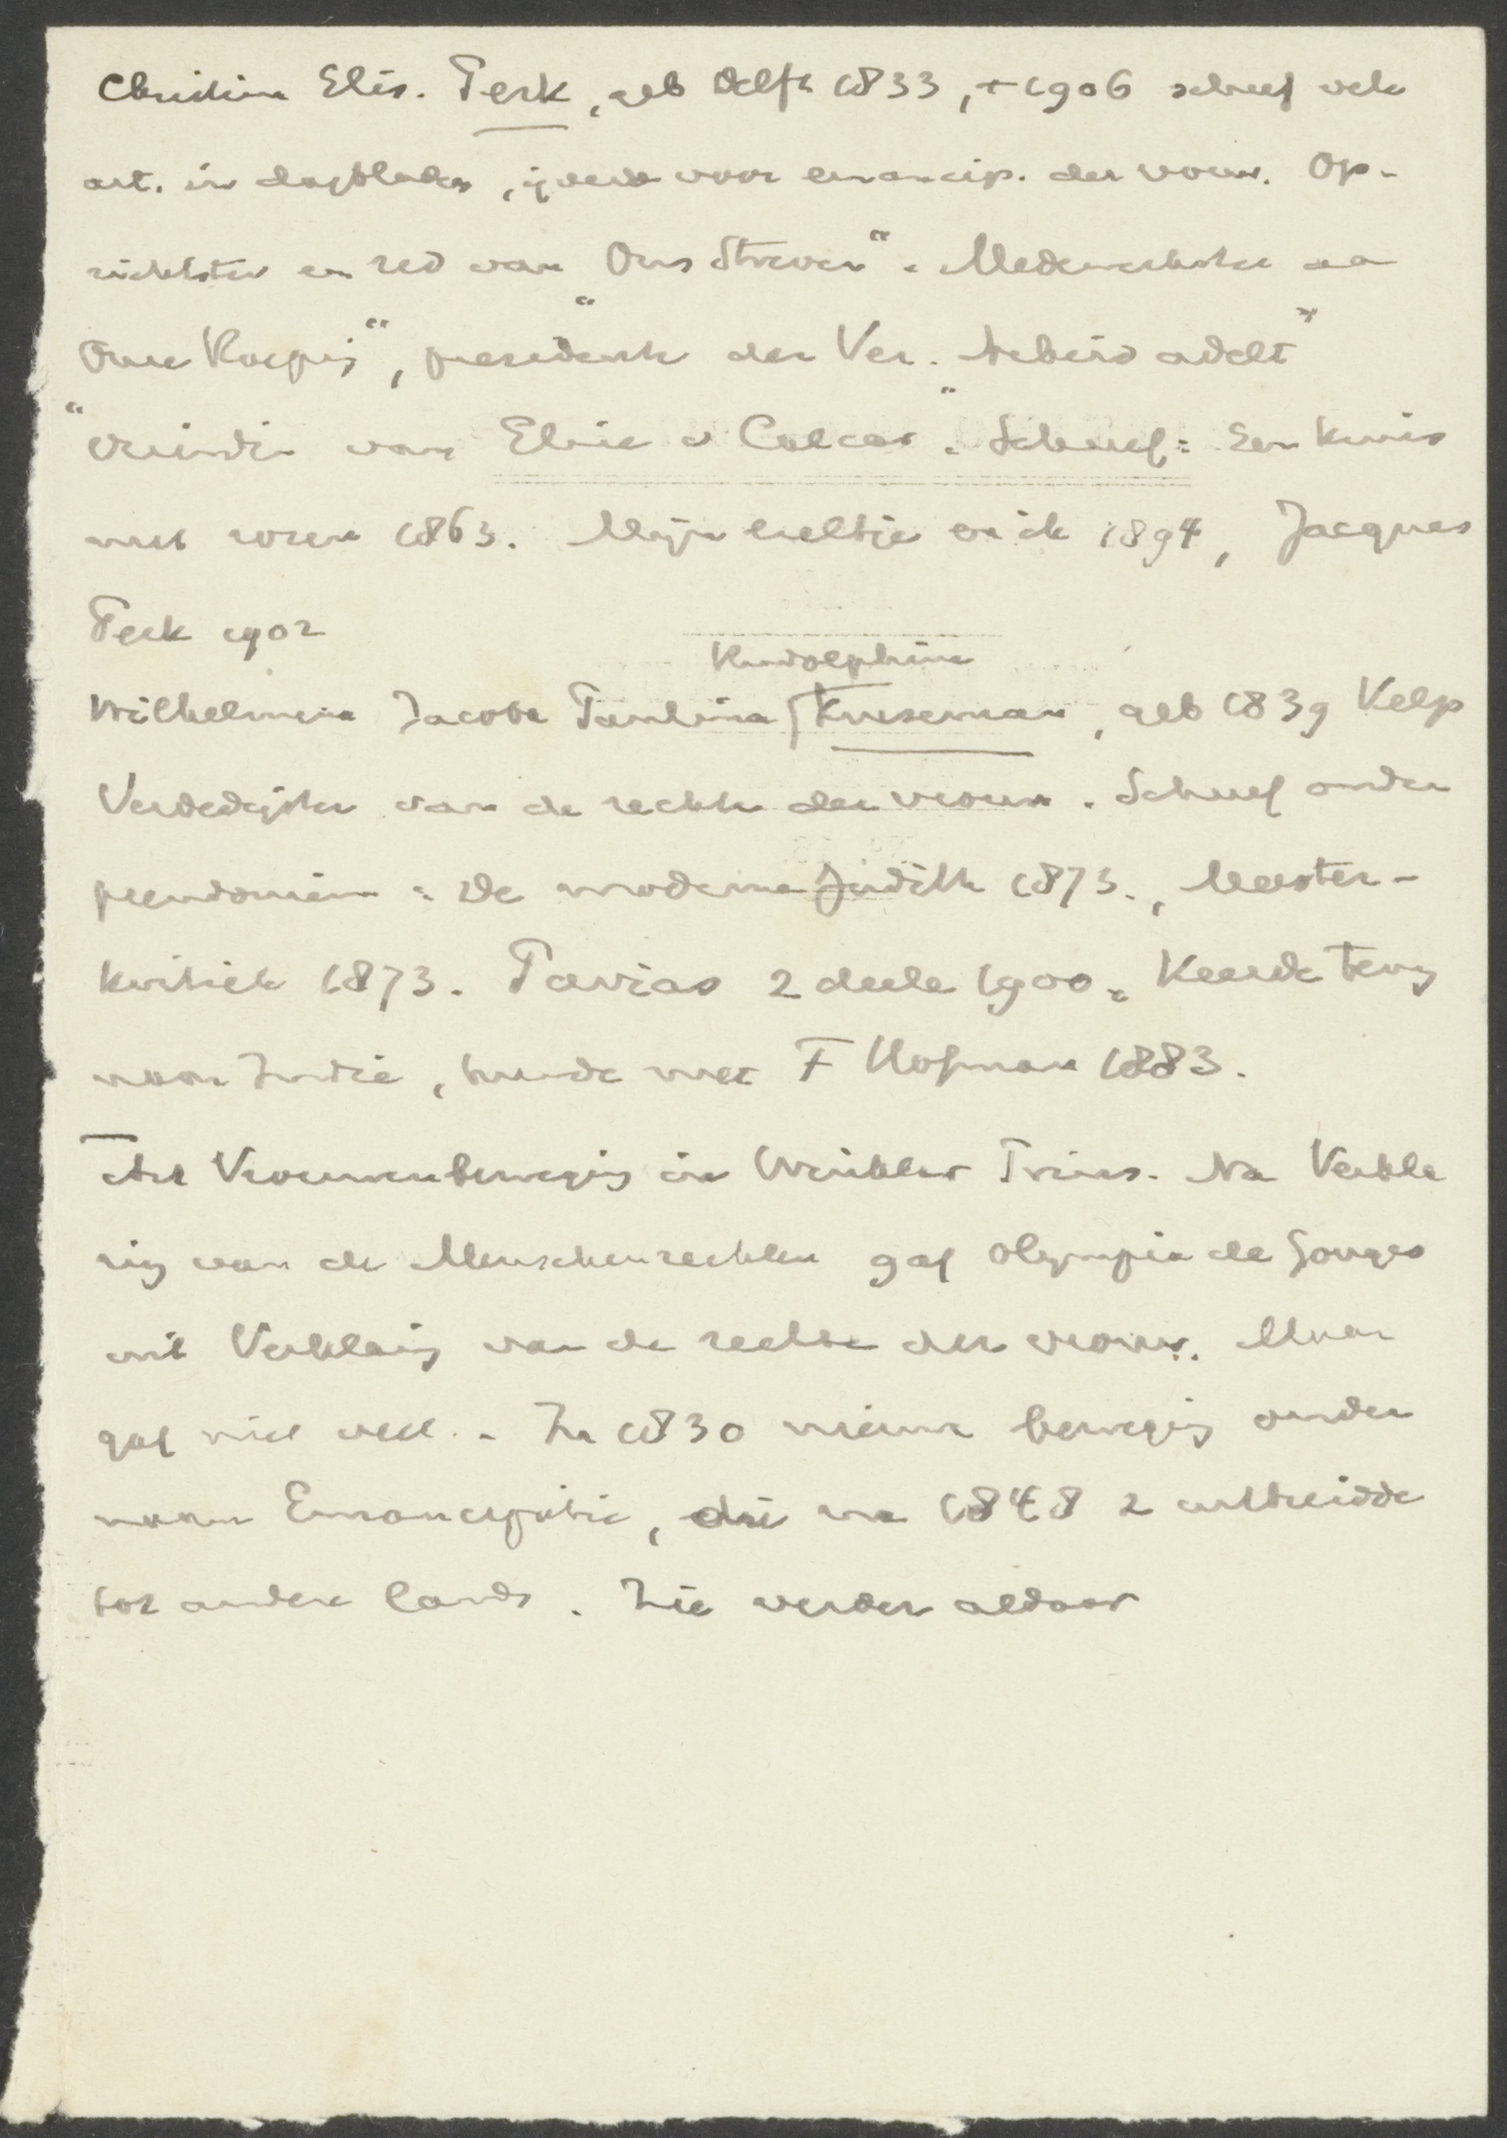 Christine Elis. Perk, geb Delft 1833, + 1906 schreef vele
art. in dagbladen, ijverde voor emancip. der vrouw. Op-
richtster en red van "Ons Streven". Medewerkster aa
"Onze Roeping", presidente der Ver. "Arbeid adelt"
Vriendin van Elise v Calcar. Schreef: Een kruis
met rozen 1863. Mijn ezeltje en ik 1894, Jacques
Perk 1902
Rudolphine
Wilhelmina Jacoba Paulina Kruseman, geb 1839 Velp
Verdedigster van de rechten der vrouw. Schreef onder
pseudoniem: De moderne Judith 1873., Meester-
kritiek 1873. Parias 2 deele 1900. Keerde terug
naar Indie, huwde met F Hofman 1883.
Art Vrouwenbeweging in Winkler Prins. Na Verkla
ring van de Menschenrechten gaf Olympia de Gouges
uit Verklaring van de rechten der vrouw. Maar
gaf niet veel. - In 1830 nieuwe beweging onder
naam Emancipatie, die na 1848 z uitbreidde
tot andere landn. Zie verder aldaar